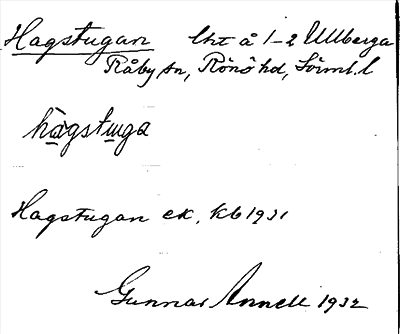 Hagstugan lht å 1-2 Ullberga
Råby sn, Rönö hd, Sörml. l
hagstuga
Hagstugan ek. kb 1931
Gunnar Annell 1932